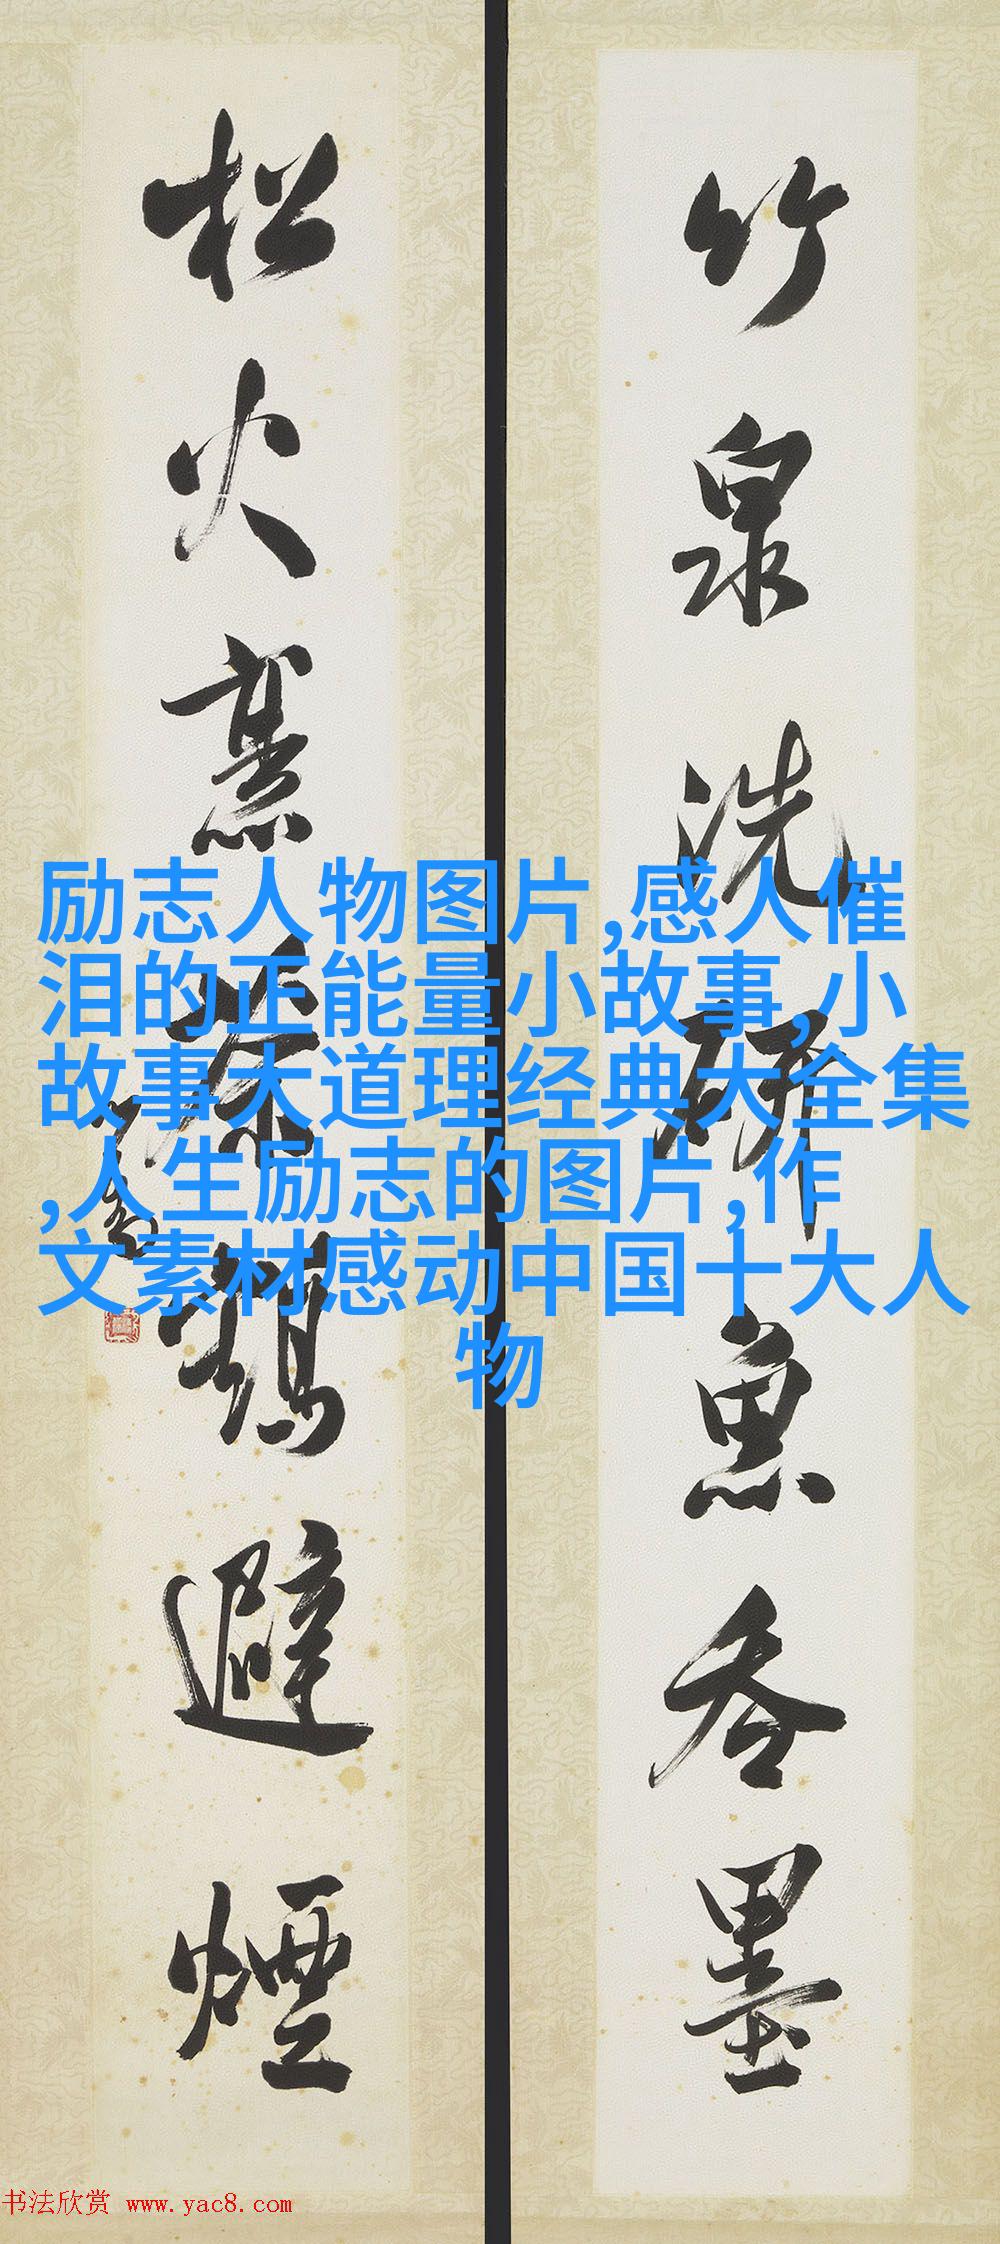 竹泉洗研魚吞墨
松火熏茶鶴避煙
励志人物图片,感人催
泪的正能量小故事,小
故事大道理经典大全集
,人生励志的图片,作
文素材感动中国十大人
物
书法欣赏 www.yac8.com